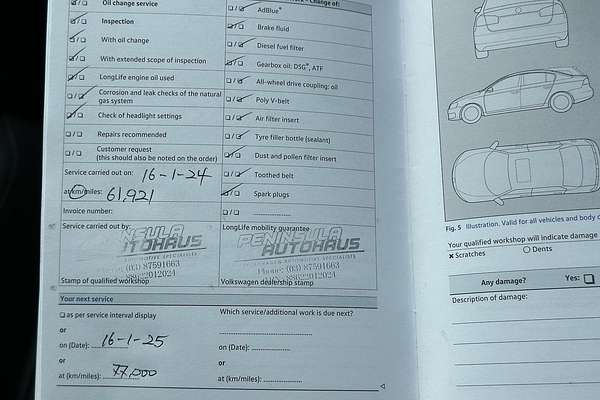 Oil change service
Inspection
With oil change
With extended scope of inspection
LongLife engine oil used
Corrosion and leak checks of the natural
gas system
Check of headlight settings
Repairs recommended
Customer request
(this should also be noted on the order)
Service carried out on: 16-1-24
at km/miles: 61,921
Invoice number:
Service carried out by
PENINSULA
AUTOHAUS
(03) 87591663
Stamp of qualified workshop
Change of:
AdBlue®
Brake fluid
Diesel fuel filter
Gearbox oil: DSG®, ATF
All-wheel drive coupling: oil
Poly V-belt
Air filter insert
Tyre filler bottle (sealant)
Dust and pollen filter insert
Toothed belt
Spark plugs
LongLife mobility guarantee
PENINSULA
AUTOHAUS
Phone: (03) 87591663
Volkswagen dealership stamp
Your next service
as per service interval display
or
on (Date): 16-1-25
or
at (km/miles): 77,000
Which service/additional work is due next?
on (Date):
or
at (km/miles):
Fig. 5 Illustration. Valid for all vehicles and body
Your qualified workshop will indicate damage
x Scratches
O Dents
Any damage? Yes:
Description of damage: